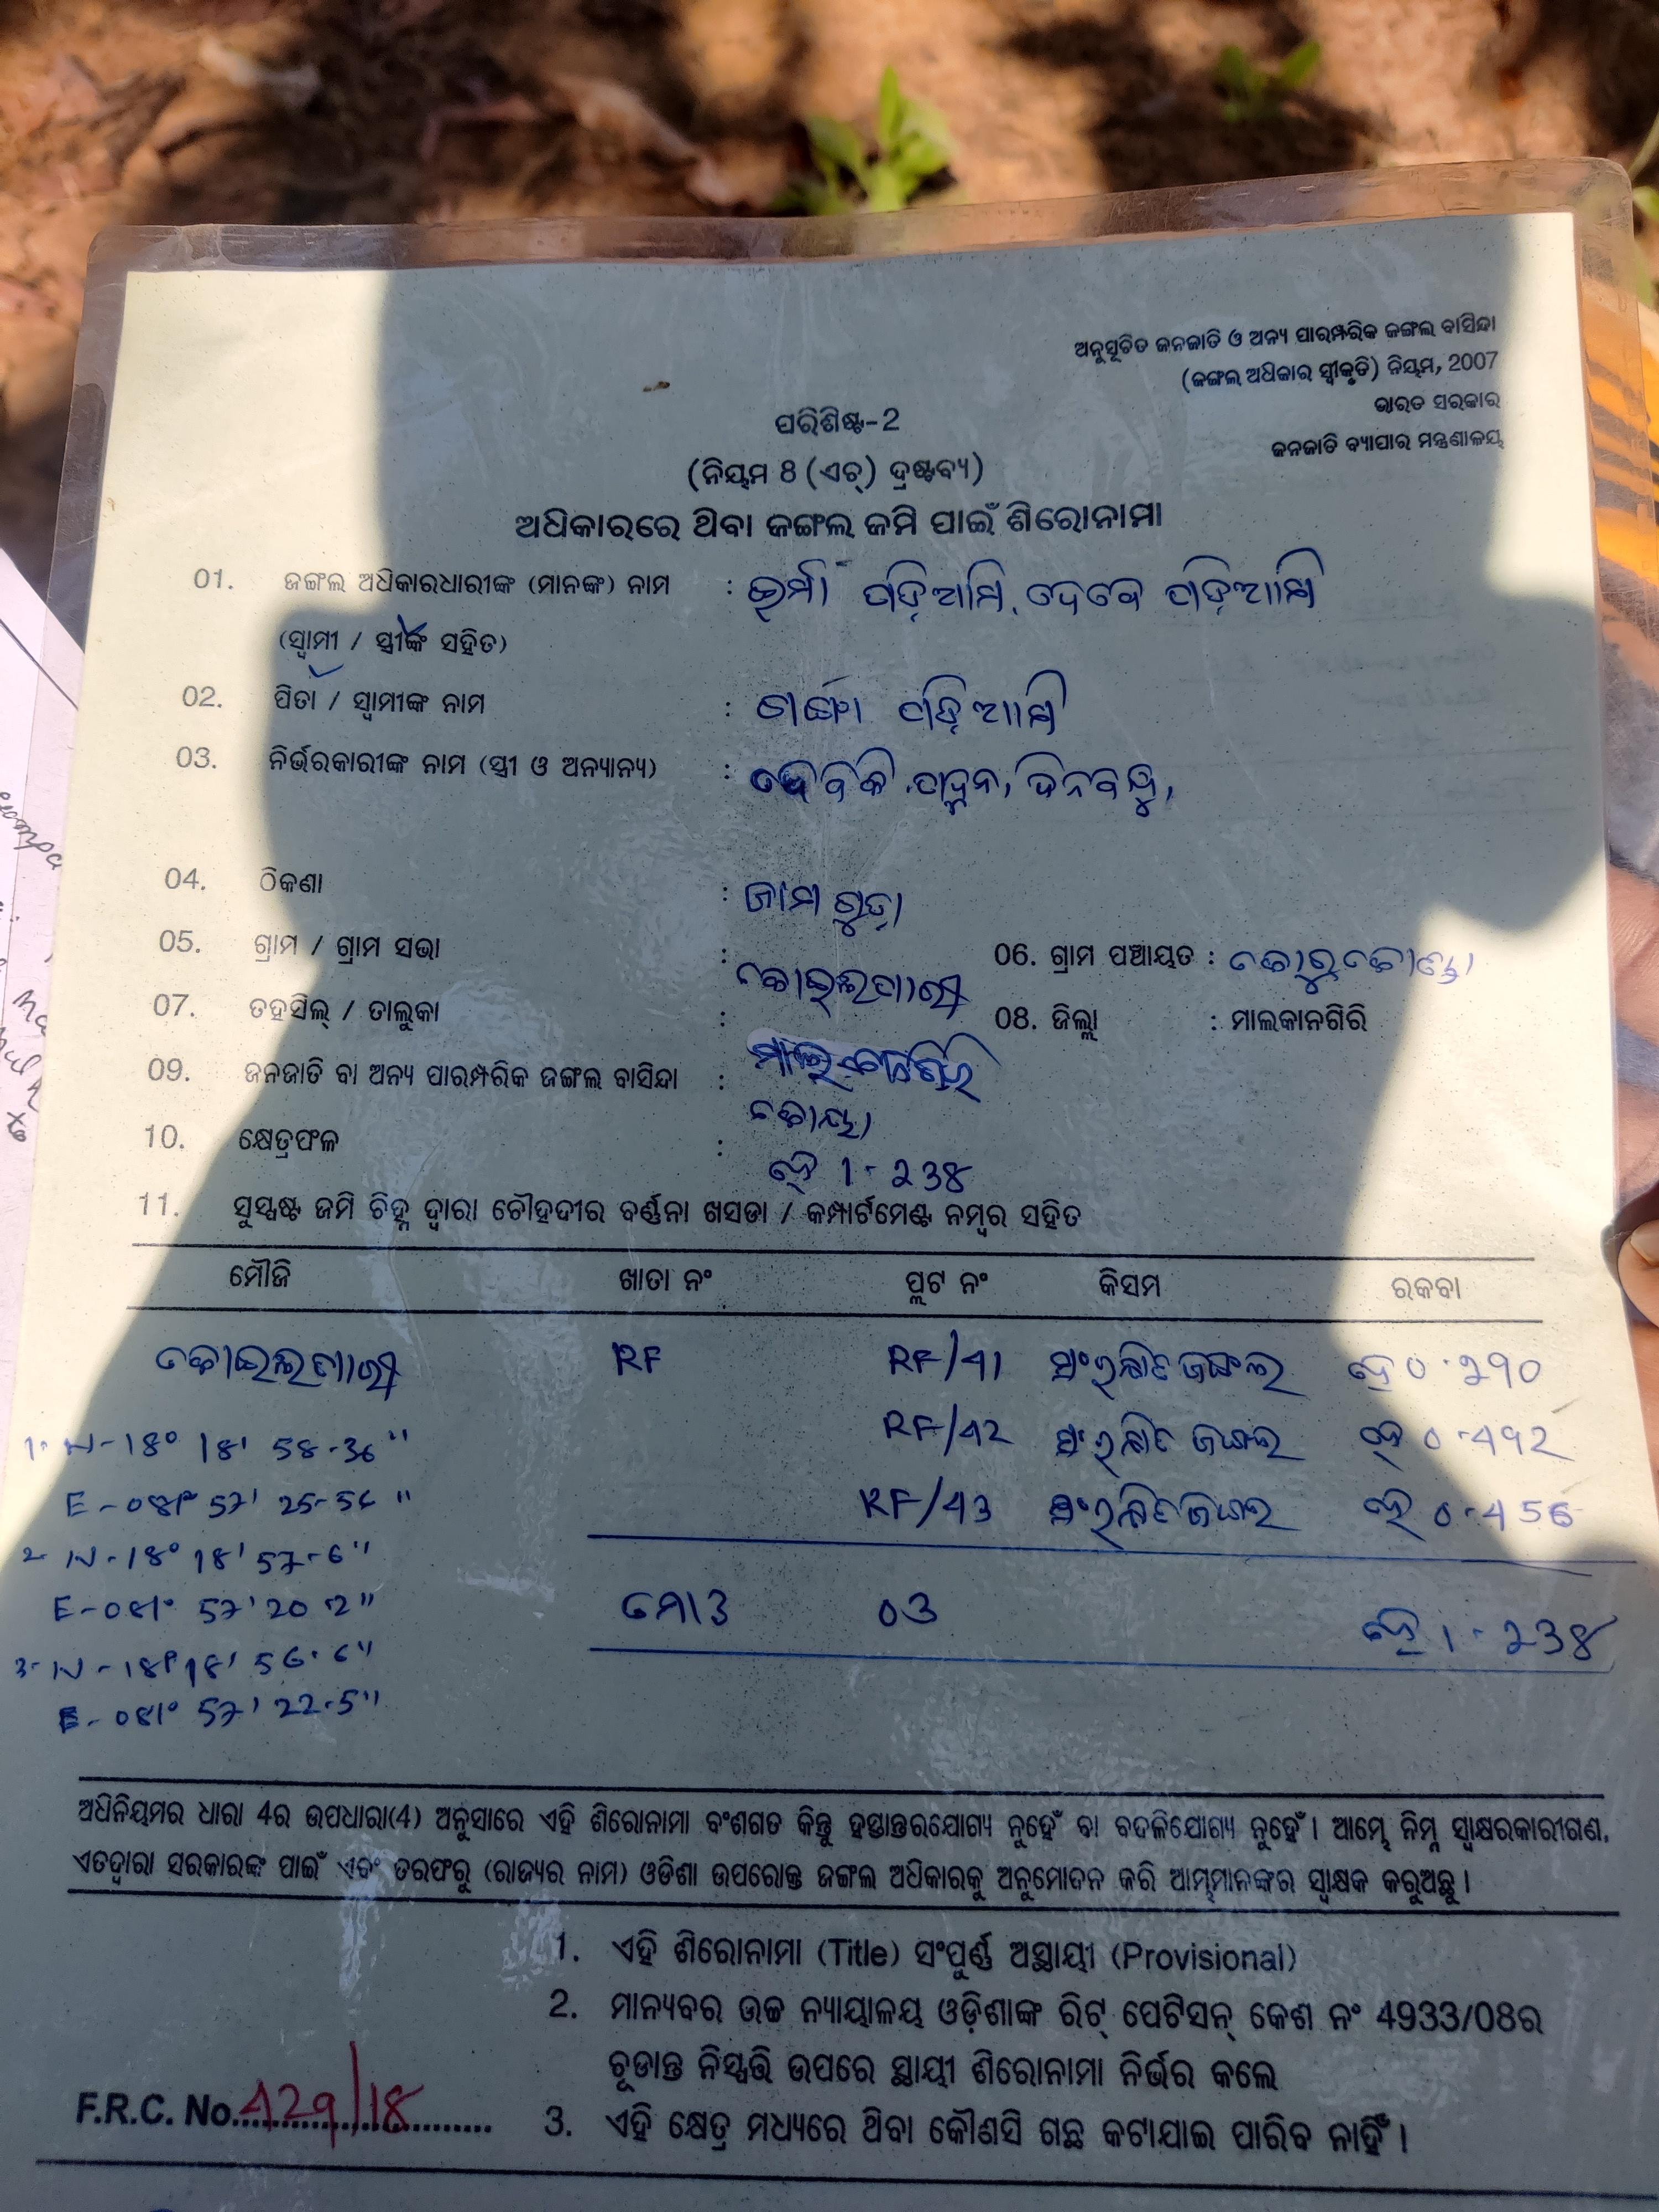 ଅନୁସୂଚିତ ଜନଜାତି ଓ ଅନ୍ୟ ପାରମ୍ପରିକ ଜଙ୍ଗଲ ବାସିନ୍ଦା
(ଜଙ୍ଗଲ ଅଧିକାର ସ୍ୱୀକୃତି) ନିୟମ, 2007
ଭାରତ ସରକାର
ଜନଜାତି ବ୍ୟାପାର ମନ୍ତ୍ରଣାଳୟ
ପରିଶିଷ୍ଟ-2
(ନିୟମ 8 (ଏଚ୍) ଦ୍ରଷ୍ଟବ୍ୟ)
ଅଧିକାରରେ ଥିବା ଜଙ୍ଗଲ ଜମି ପାଇଁ ଶିରୋନାମା
01. ଜଙ୍ଗଲ ଅଧିକାରଧାରୀଙ୍କ (ମାନଙ୍କ) ନାମ : ଇର୍ମା ପଡ଼ିଆମି, ଦେବେ ପଡ଼ିଆମି
(ସ୍ୱାମୀ / ସ୍ତ୍ରୀଙ୍କ ସହିତ)
02. ପିତା / ସ୍ୱାମୀଙ୍କ ନାମ : ଗଙ୍ଗା ପଡ଼ିଆମି
03. ନିର୍ଭରକାରୀଙ୍କ ନାମ (ସ୍ତ୍ରୀ ଓ ଅନ୍ୟାନ୍ୟ) : ଦେବକି
04. ଠିକଣା : ଜାମଗୁଡ଼ା
05. ଗ୍ରାମ / ଗ୍ରାମ ସଭା : କୋଇଲପାରୀ 06. ଗ୍ରାମ ପଞ୍ଚାୟତ : କୋରୁକୋଣ୍ଡା
07. ତହସିଲ୍ / ତାଲୁକା : 08. ଜିଲ୍ଲା : ମାଲକାନଗିରି
09. ଜନଜାତି ବା ଅନ୍ୟ ପାରମ୍ପରିକ ଜଙ୍ଗଲ ବାସିନ୍ଦା : କୋୟା
10. କ୍ଷେତ୍ରଫଳ : ହେ 1.238
11. ସୁସ୍ପଷ୍ଟ ଜମି ଚିହ୍ନ ଦ୍ୱାରା ଚୌହଦୀର ବର୍ଣ୍ଣନା ଖସଡା / କମ୍ପାର୍ଟମେଣ୍ଟ ନମ୍ବର ସହିତ
ମୌଜି ଖାତା ନଂ ପ୍ଲଟ ନଂ କିସମ ରକବା
RF RF/41 ସଂରକ୍ଷିତ ଜଙ୍ଗଲ ହେ 0.290
1. N-18° 18' 58.36" RF/42 ସଂରକ୍ଷିତ ଜଙ୍ଗଲ ହେ 0.492
E-081° 57' 25.54" RF/43 ସଂରକ୍ଷିତ ଜଙ୍ଗଲ ହେ 0.456
2- N-18° 18' 57.6"
E-081° 57' 20.2" ମୋଟ 03 ହେ 1.238
3- N-18° 18' 56.6"
E-081° 57' 22.5"
ଅଧିନିୟମର ଧାରା 4ର ଉପଧାରା(4) ଅନୁସାରେ ଏହି ଶିରୋନାମା ବଂଶଗତ କିନ୍ତୁ ହସ୍ତାନ୍ତରଯୋଗ୍ୟ ନୁହେଁ ବା ବଦଳିଯୋଗ୍ୟ ନୁହେଁ । ଆମ୍ଭେ ନିମ୍ନ ସ୍ୱାକ୍ଷରକାରୀଗଣ,
ଏତଦ୍ୱାରା ସରକାରଙ୍କ ପାଇଁ ଏବଂ ତରଫରୁ (ରାଜ୍ୟର ନାମ) ଓଡିଶା ଉପରୋକ୍ତ ଜଙ୍ଗଲ ଅଧିକାରକୁ ଅନୁମୋଦନ କରି ଆମ୍ଭମାନଙ୍କର ସ୍ୱାକ୍ଷକ କରୁଅଛୁ ।
1. ଏହି ଶିରୋନାମା (Title) ସଂପୂର୍ଣ୍ଣ ଅସ୍ଥାୟୀ (Provisional)
2. ମାନ୍ୟବର ଉଚ୍ଚ ନ୍ୟାୟାଳୟ ଓଡ଼ିଶାଙ୍କ ରିଟ୍ ପେଟିସନ୍ କେଶ ନଂ 4933/08ର
ଚୂଡାନ୍ତ ନିସ୍ପତ୍ତି ଉପରେ ସ୍ଥାୟୀ ଶିରୋନାମା ନିର୍ଭର କଲେ
F.R.C. No. 429/18
3. ଏହି କ୍ଷେତ୍ର ମଧ୍ୟରେ ଥିବା କୌଣସି ଗଛ କଟାଯାଇ ପାରିବ ନାହିଁ ।